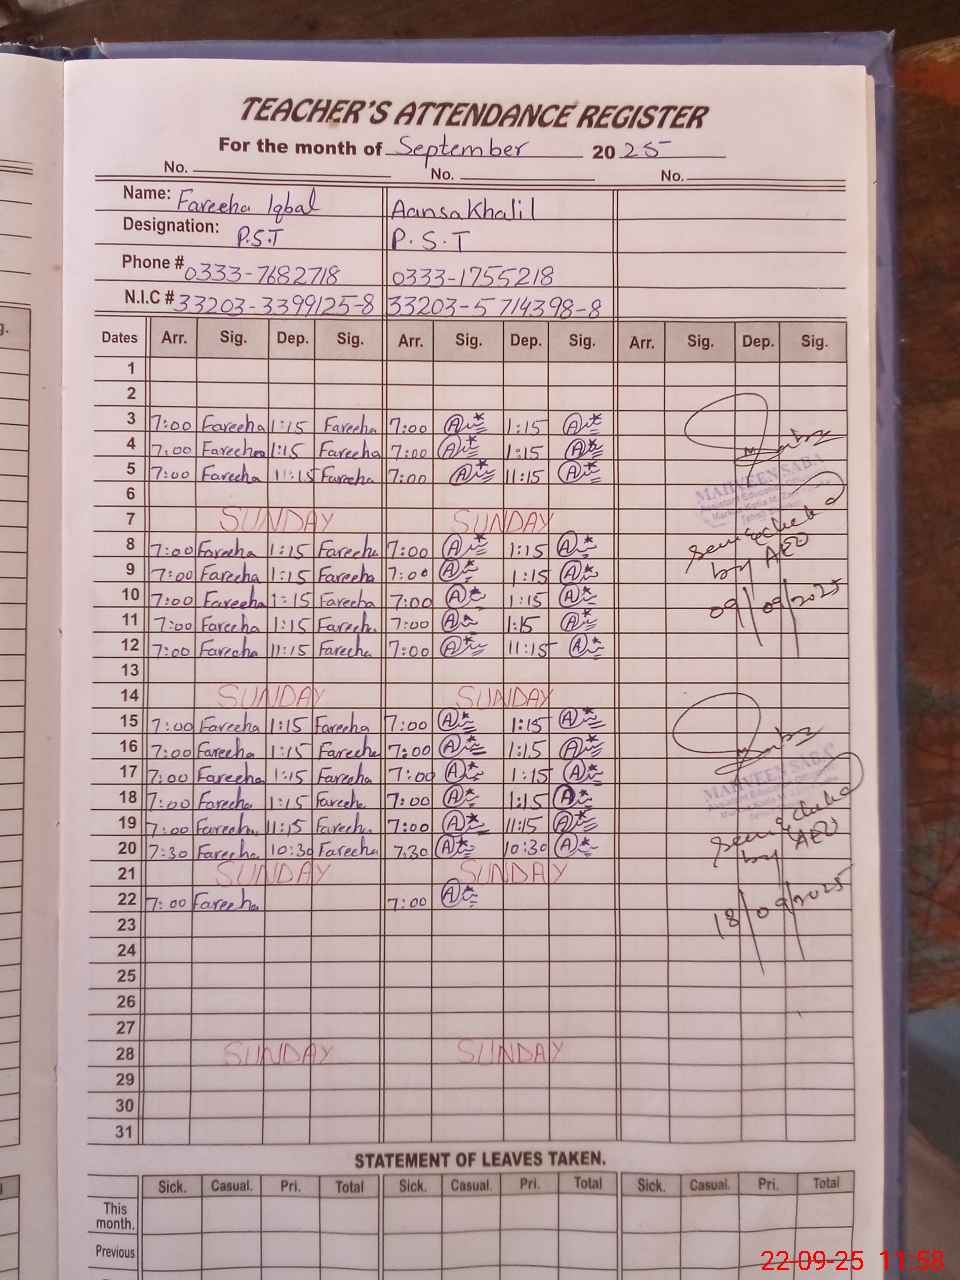 TEACHER'S ATTENDANCE REGISTER
For the month of September 2025
No. No. No.
Name: Fareeha Iqbal Aansa Khalil
Designation: P.S.T P.S.T
Phone # 0333-7682718 0333-1755218
N.I.C # 33203-3399125-8 33203-5714398-8
Dates Arr. Sig. Dep. Sig. Arr. Sig. Dep. Sig. Arr. Sig. Dep. Sig.
1
2
3 7:00 Fareeha 1:15 Fareeha 7:00 1:15
4 7:00 Fareeha 1:15 Fareeha 7:00 1:15
5 7:00 Fareeha 11:15 Fareeha 7:00 11:15
MAHVEEN SABA
6
7 SUNDAY SUNDAY
8 7:00 Fareeha 1:15 Fareeha 7:00 1:15
by AEO
9 7:00 Fareeha 1:15 Fareeha 7:00 1:15
10 7:00 Fareeha 1:15 Fareeha 7:00 1:15
09/09/2025
11 7:00 Fareeha 1:15 Fareeha 7:00 1:15
12 7:00 Fareeha 11:15 Fareeha 7:00 11:15
13
14 SUNDAY SUNDAY
15 7:00 Fareeha 1:15 Fareeha 7:00 1:15
16 7:00 Fareeha 1:15 Fareeha 7:00 1:15
17 7:00 Fareeha 1:15 Fareeha 7:00 1:15
MAHVEEN SABA
18 7:00 Fareeha 1:15 Fareeha 7:00 1:15
19 7:00 Fareeha 11:15 Fareeha 7:00 11:15
20 7:30 Fareeha 10:30 Fareeha 7:30 10:30
by AEO
21 SUNDAY SUNDAY
22 7:00 Fareeha 7:00
18/09/2025
23
24
25
26
27
28 SUNDAY SUNDAY
29
30
31
STATEMENT OF LEAVES TAKEN.
Sick. Casual. Pri. Total Sick. Casual. Pri. Total Sick. Casual. Pri. Total
This month.
Previous
22-09-25 11:58